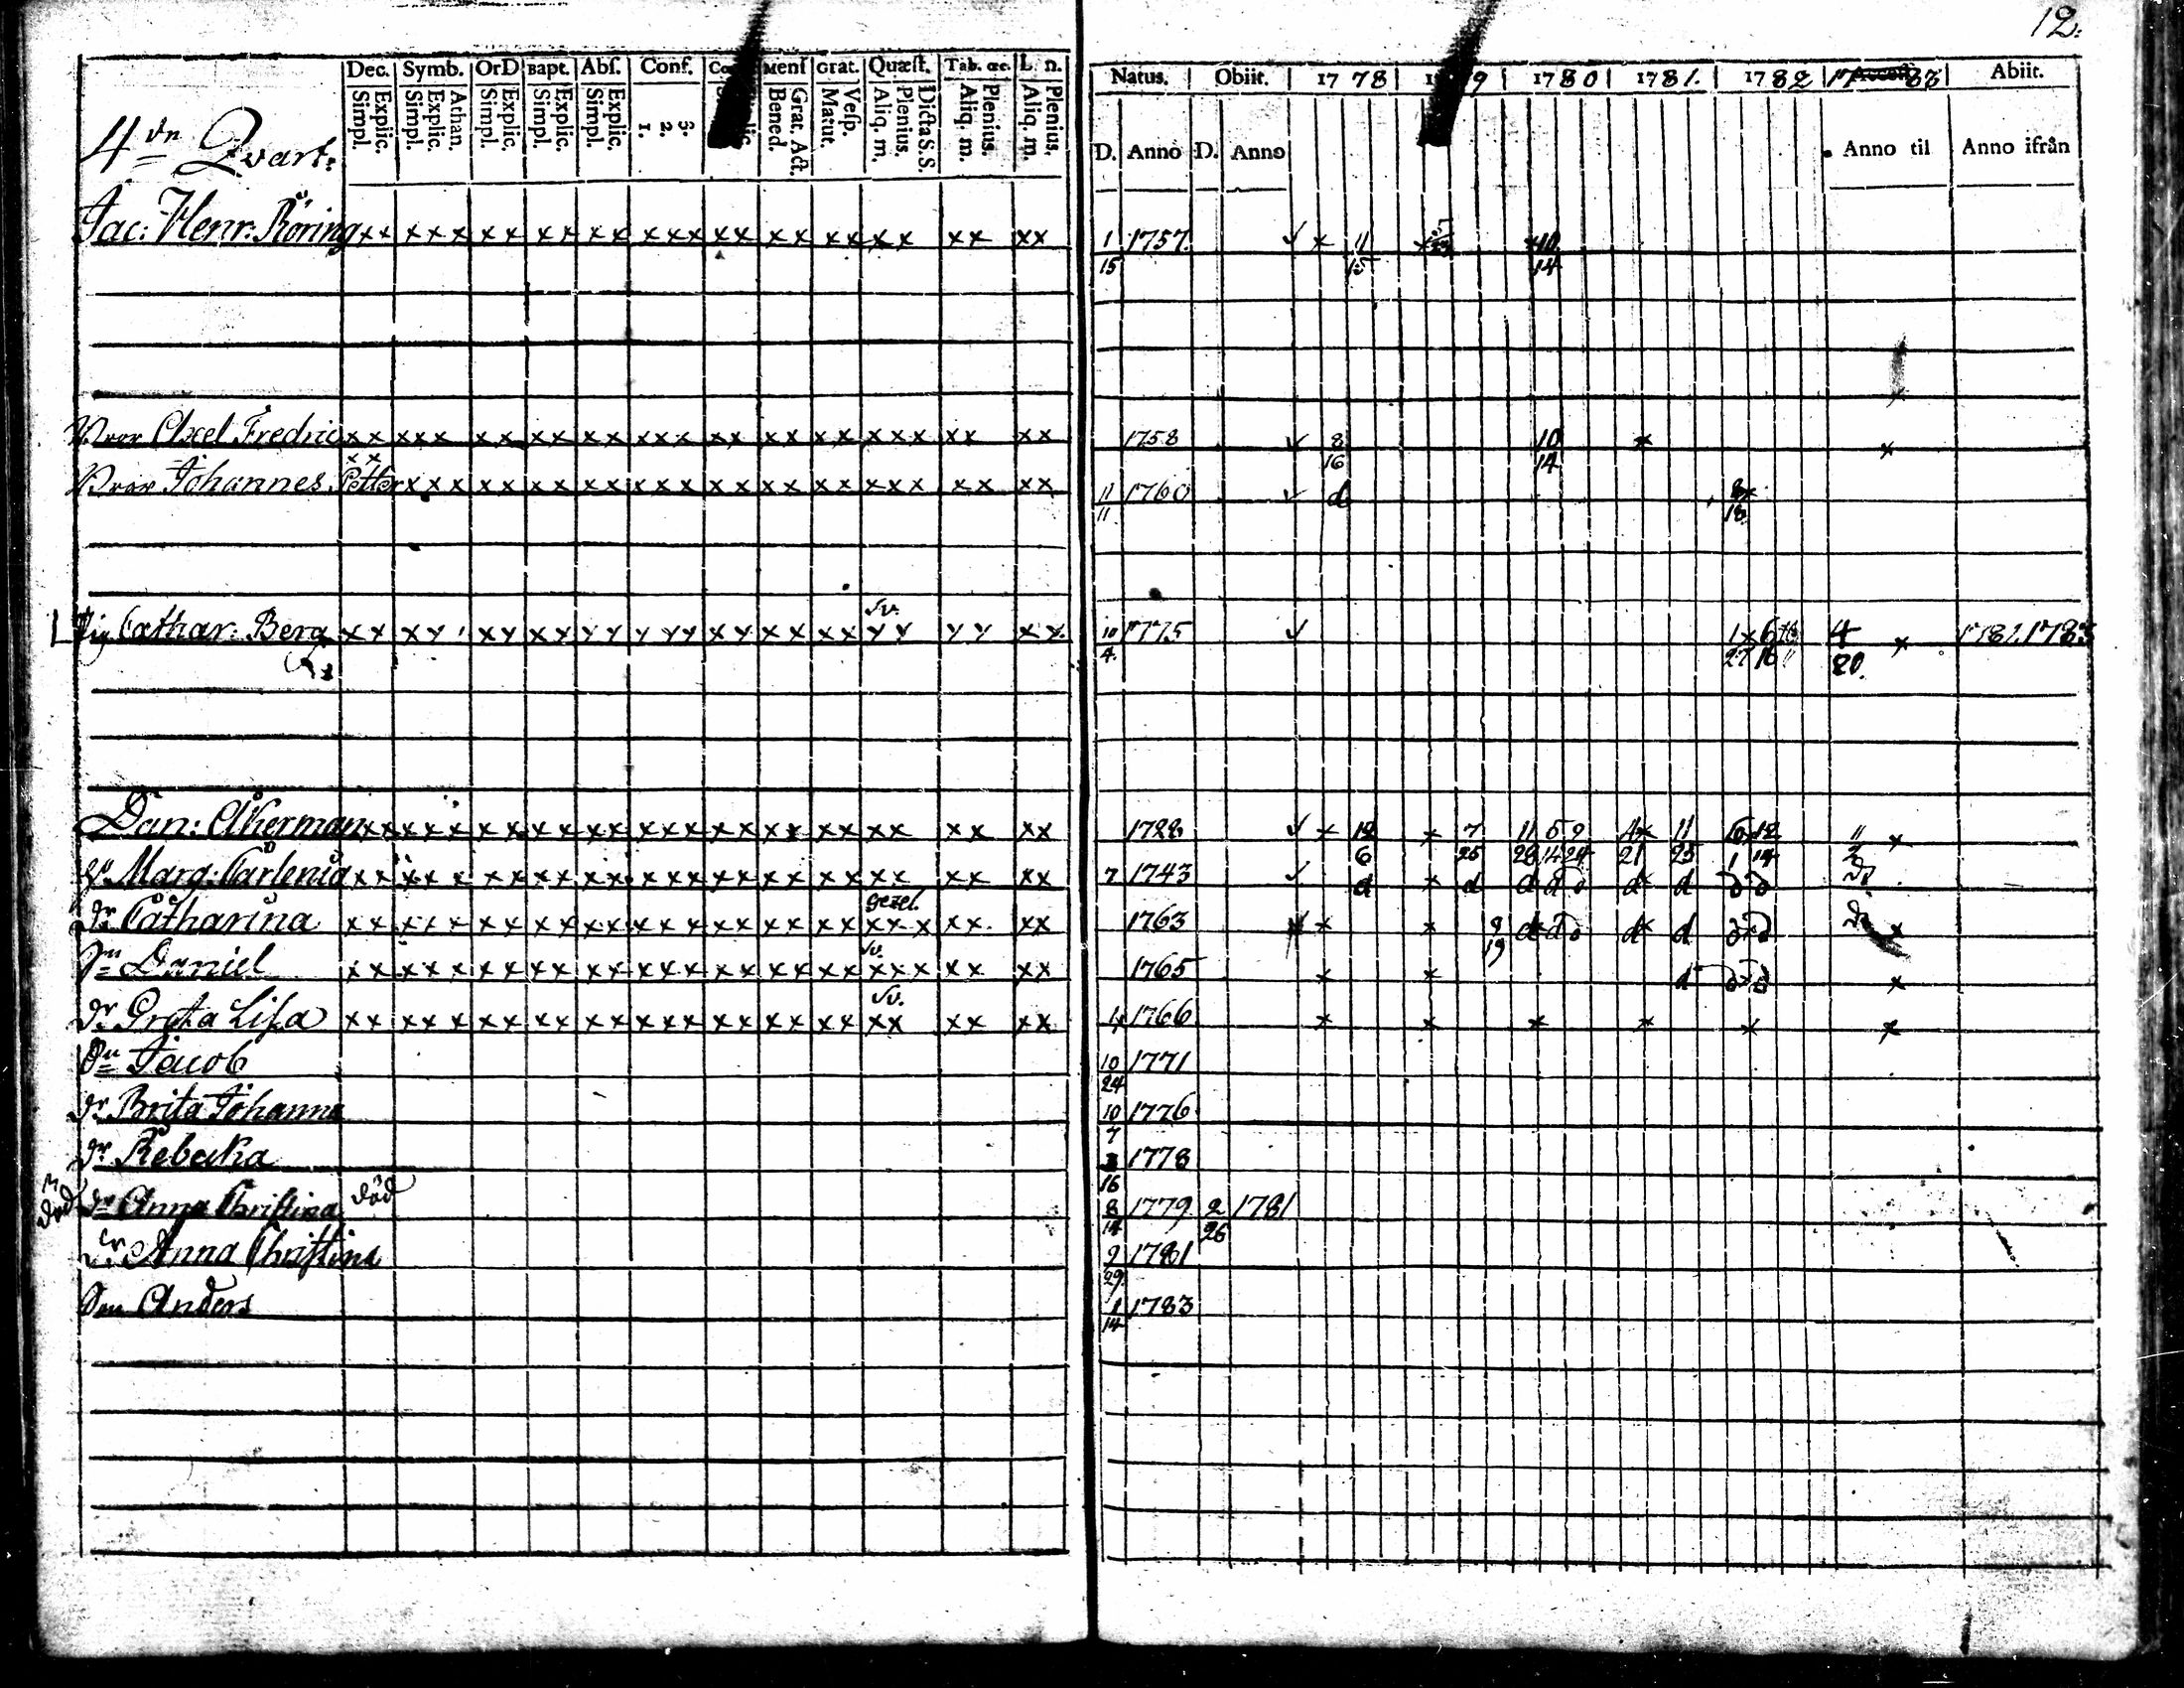 12.
Dec. Symb. OrD Bapt. Abſ. Conf. Menſ Grat. Quæſt. Tab. œc. L. n. Natus. Obiit. 1778 1780 1781. 1782 83 Abiit.
Simpl. Explic. Simpl. Explic. Athan. Simpl. Explic. Simpl. Explic. Simpl. Explic. 1. 2. 3. Bened. Grat. Act. Matut. Veſp. Aliq. m. Plenius. Dicta S.S. Aliq. m. Plenius. Aliq. m. Plenius. D. Anno D. Anno Anno til Anno ifrån
4de Qvart:
Jac: Henr: Röring xx xxx xx xx xx xxx xx xx xx xx xx xx 1/15 1757. ✓ x 11/15 x x10/14
Bror Axel Fredric xx xxx xx xx xx xxx xx xx xx xxx xx xx 1758 ✓ 8/16 10/14 x x
Bror Johannes Petter xx xxx xx xx xx xxx xx xx xx xxx xx xx 11/11 1760 ✓ d
Sv.
Pig Cathar: Berg xx xx xx xx xx xxx xx xx xx xx xx xx 10/4 1775 ✓ 4/20. x 1781.1783
Dan: Åkerman xx xxx xx xx xx xxx xx xx xx xx xx xx 1728 ✓ x 12/6 x 7/25 11/28 5/14 9/24 4x/21 11/25
H. Marg: Carlenia xx xxx xx xx xx xxx xx xx xx xx xx xx 7 1743 ✓ d x d d d d d d d d
gezel.
Dr Catharina xx xxx xx xx xx xxx xx xx xx xxx xx xx 1763 x x 9/19 d d d d d d x
Sv.
Sn Daniel xx xxx xx xx xx xxx xx xx xx xxx xx xx 1765 x x d d x d x
Sv.
Dr Greta Liſa xx xxx xx xx xx xxx xx xx xx xx xx xx 1766 x x x x x x
Sn Jacob 10/24 1771
Dr Brita Johanna 10/7 1776
Dr Rebecka 3/16 1778
död Dr Anna Chriſtina död 8/14 1779 2/26 1781
Dr Anna Chriſtina 9/29. 1781
Son Anders 1/14 1783